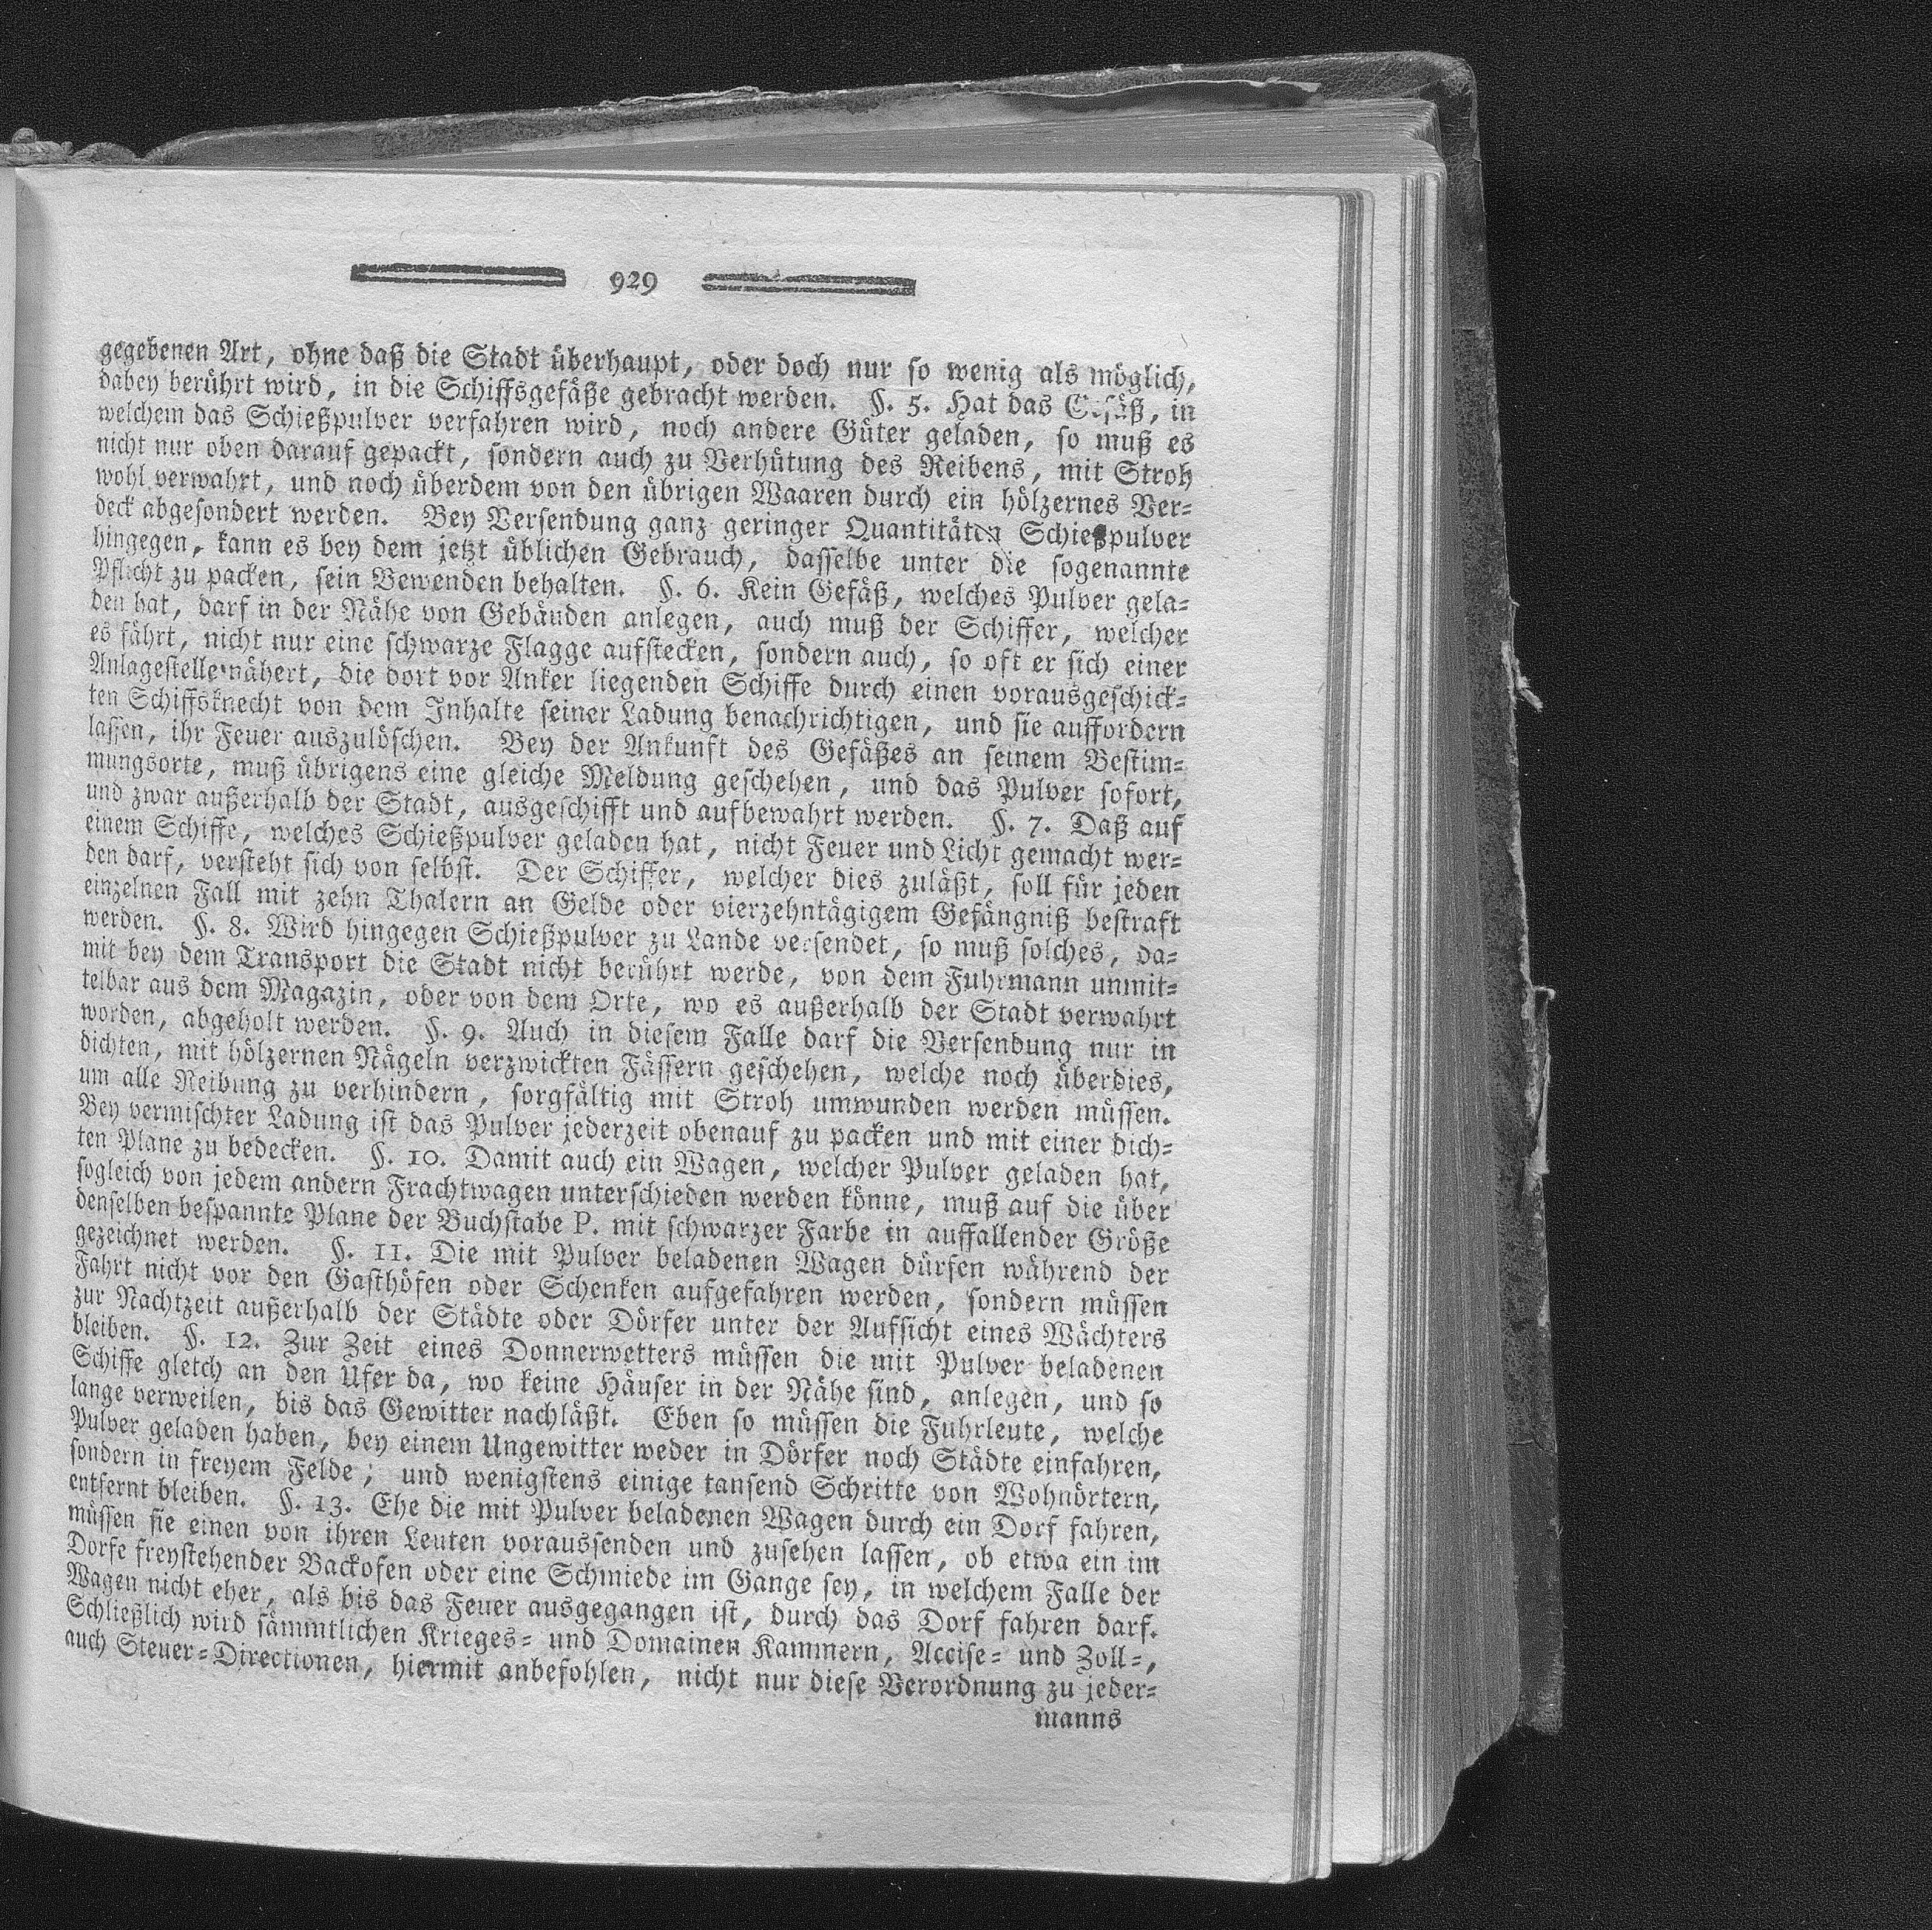 929
gegebenen Art, ohne daß die Stadt überhaupt, oder doch nur so wenig als möglich,
dabey berührt wird, in die Schiffsgefäße gebracht werden. §. 5. Hat das Gefäß, in
welchem das Schießpulver verfahren wird, noch andere Güter geladen, so muß es
nicht nur oben darauf gepackt, sondern auch zu Verhütung des Reibens, mit Stroh
wohl verwahrt, und noch überdem von den übrigen Waaren durch ein hölzernes Ver-
deck abgesondert werden. Bey Versendung ganz geringer Quantitäten Schießpulver
hingegen, kann es bey dem jetzt üblichen Gebrauch, dasselbe unter die sogenannte
Pflicht zu packen, sein Bewenden behalten. §. 6. Kein Gefäß, welches Pulver gela-
den hat, darf in der Nähe von Gebäuden anlegen, auch muß der Schiffer, welcher
es fährt, nicht nur eine schwarze Flagge aufstecken, sondern auch, so oft er sich einer
Anlagestelle nähert, die dort vor Anker liegenden Schiffe durch einen vorausgeschick-
ten Schiffsknecht von dem Inhalte seiner Ladung benachrichtigen, und sie auffordern
lassen, ihr Feuer auszulöschen. Bey der Ankunft des Gefäßes an seinem Bestim-
mungsorte, muß übrigens eine gleiche Meldung geschehen, und das Pulver sofort,
und zwar außerhalb der Stadt, ausgeschifft und aufbewahrt werden. §. 7. Daß auf
einem Schiffe, welches Schießpulver geladen hat, nicht Feuer und Licht gemacht wer-
den darf, versteht sich von selbst. Der Schiffer, welcher dies zuläßt, soll für jeden
einzelnen Fall mit zehn Thalern an Gelde oder vierzehntägigem Gefängniß bestraft
werden. §. 8. Wird hingegen Schießpulver zu Lande versendet, so muß solches, da-
mit bey dem Transport die Stadt nicht berührt werde, von dem Fuhrmann unmit-
telbar aus dem Magazin, oder von dem Orte, wo es außerhalb der Stadt verwahrt
worden, abgeholt werden. §. 9. Auch in diesem Falle darf die Versendung nur in
dichten, mit hölzernen Nägeln verzwickten Fässern geschehen, welche noch überdies,
um alle Reibung zu verhindern, sorgfältig mit Stroh umwunden werden müssen.
Bey vermischter Ladung ist das Pulver jederzeit obenauf zu packen und mit einer dich-
ten Plane zu bedecken. §. 10. Damit auch ein Wagen, welcher Pulver geladen hat,
sogleich von jedem andern Frachtwagen unterschieden werden könne, muß auf die über
denselben bespannte Plane der Buchstabe P. mit schwarzer Farbe in auffallender Größe
gezeichnet werden. §. 11. Die mit Pulver beladenen Wagen dürfen während der
Fahrt nicht vor den Gasthöfen oder Schenken aufgefahren werden, sondern müssen
zur Nachtzeit außerhalb der Städte oder Dörfer unter der Aufsicht eines Wächters
bleiben. §. 12. Zur Zeit eines Donnerwetters müssen die mit Pulver beladenen
Schiffe gleich an den Ufer da, wo keine Häuser in der Nähe sind, anlegen, und so
lange verweilen, bis das Gewitter nachläßt. Eben so müssen die Fuhrleute, welche
Pulver geladen haben, bey einem Ungewitter weder in Dörfer noch Städte einfahren,
sondern in freyem Felde; und wenigstens einige tansend Schritte von Wohnörtern,
entfernt bleiben. §. 13. Ehe die mit Pulver beladenen Wagen durch ein Dorf fahren,
müssen sie einen von ihren Leuten voraussenden und zusehen lassen, ob etwa ein im
Dorfe freystehender Backofen oder eine Schmiede im Gange sey, in welchem Falle der
Wagen nicht eher, als bis das Feuer ausgegangen ist, durch das Dorf fahren darf.
Schließlich wird sämmtlichen Krieges- und Domainen Kammern, Accise- und Zoll-,
auch Steuer-Directionen, hiermit anbefohlen, nicht nur diese Verordnung zu jeder-
manns